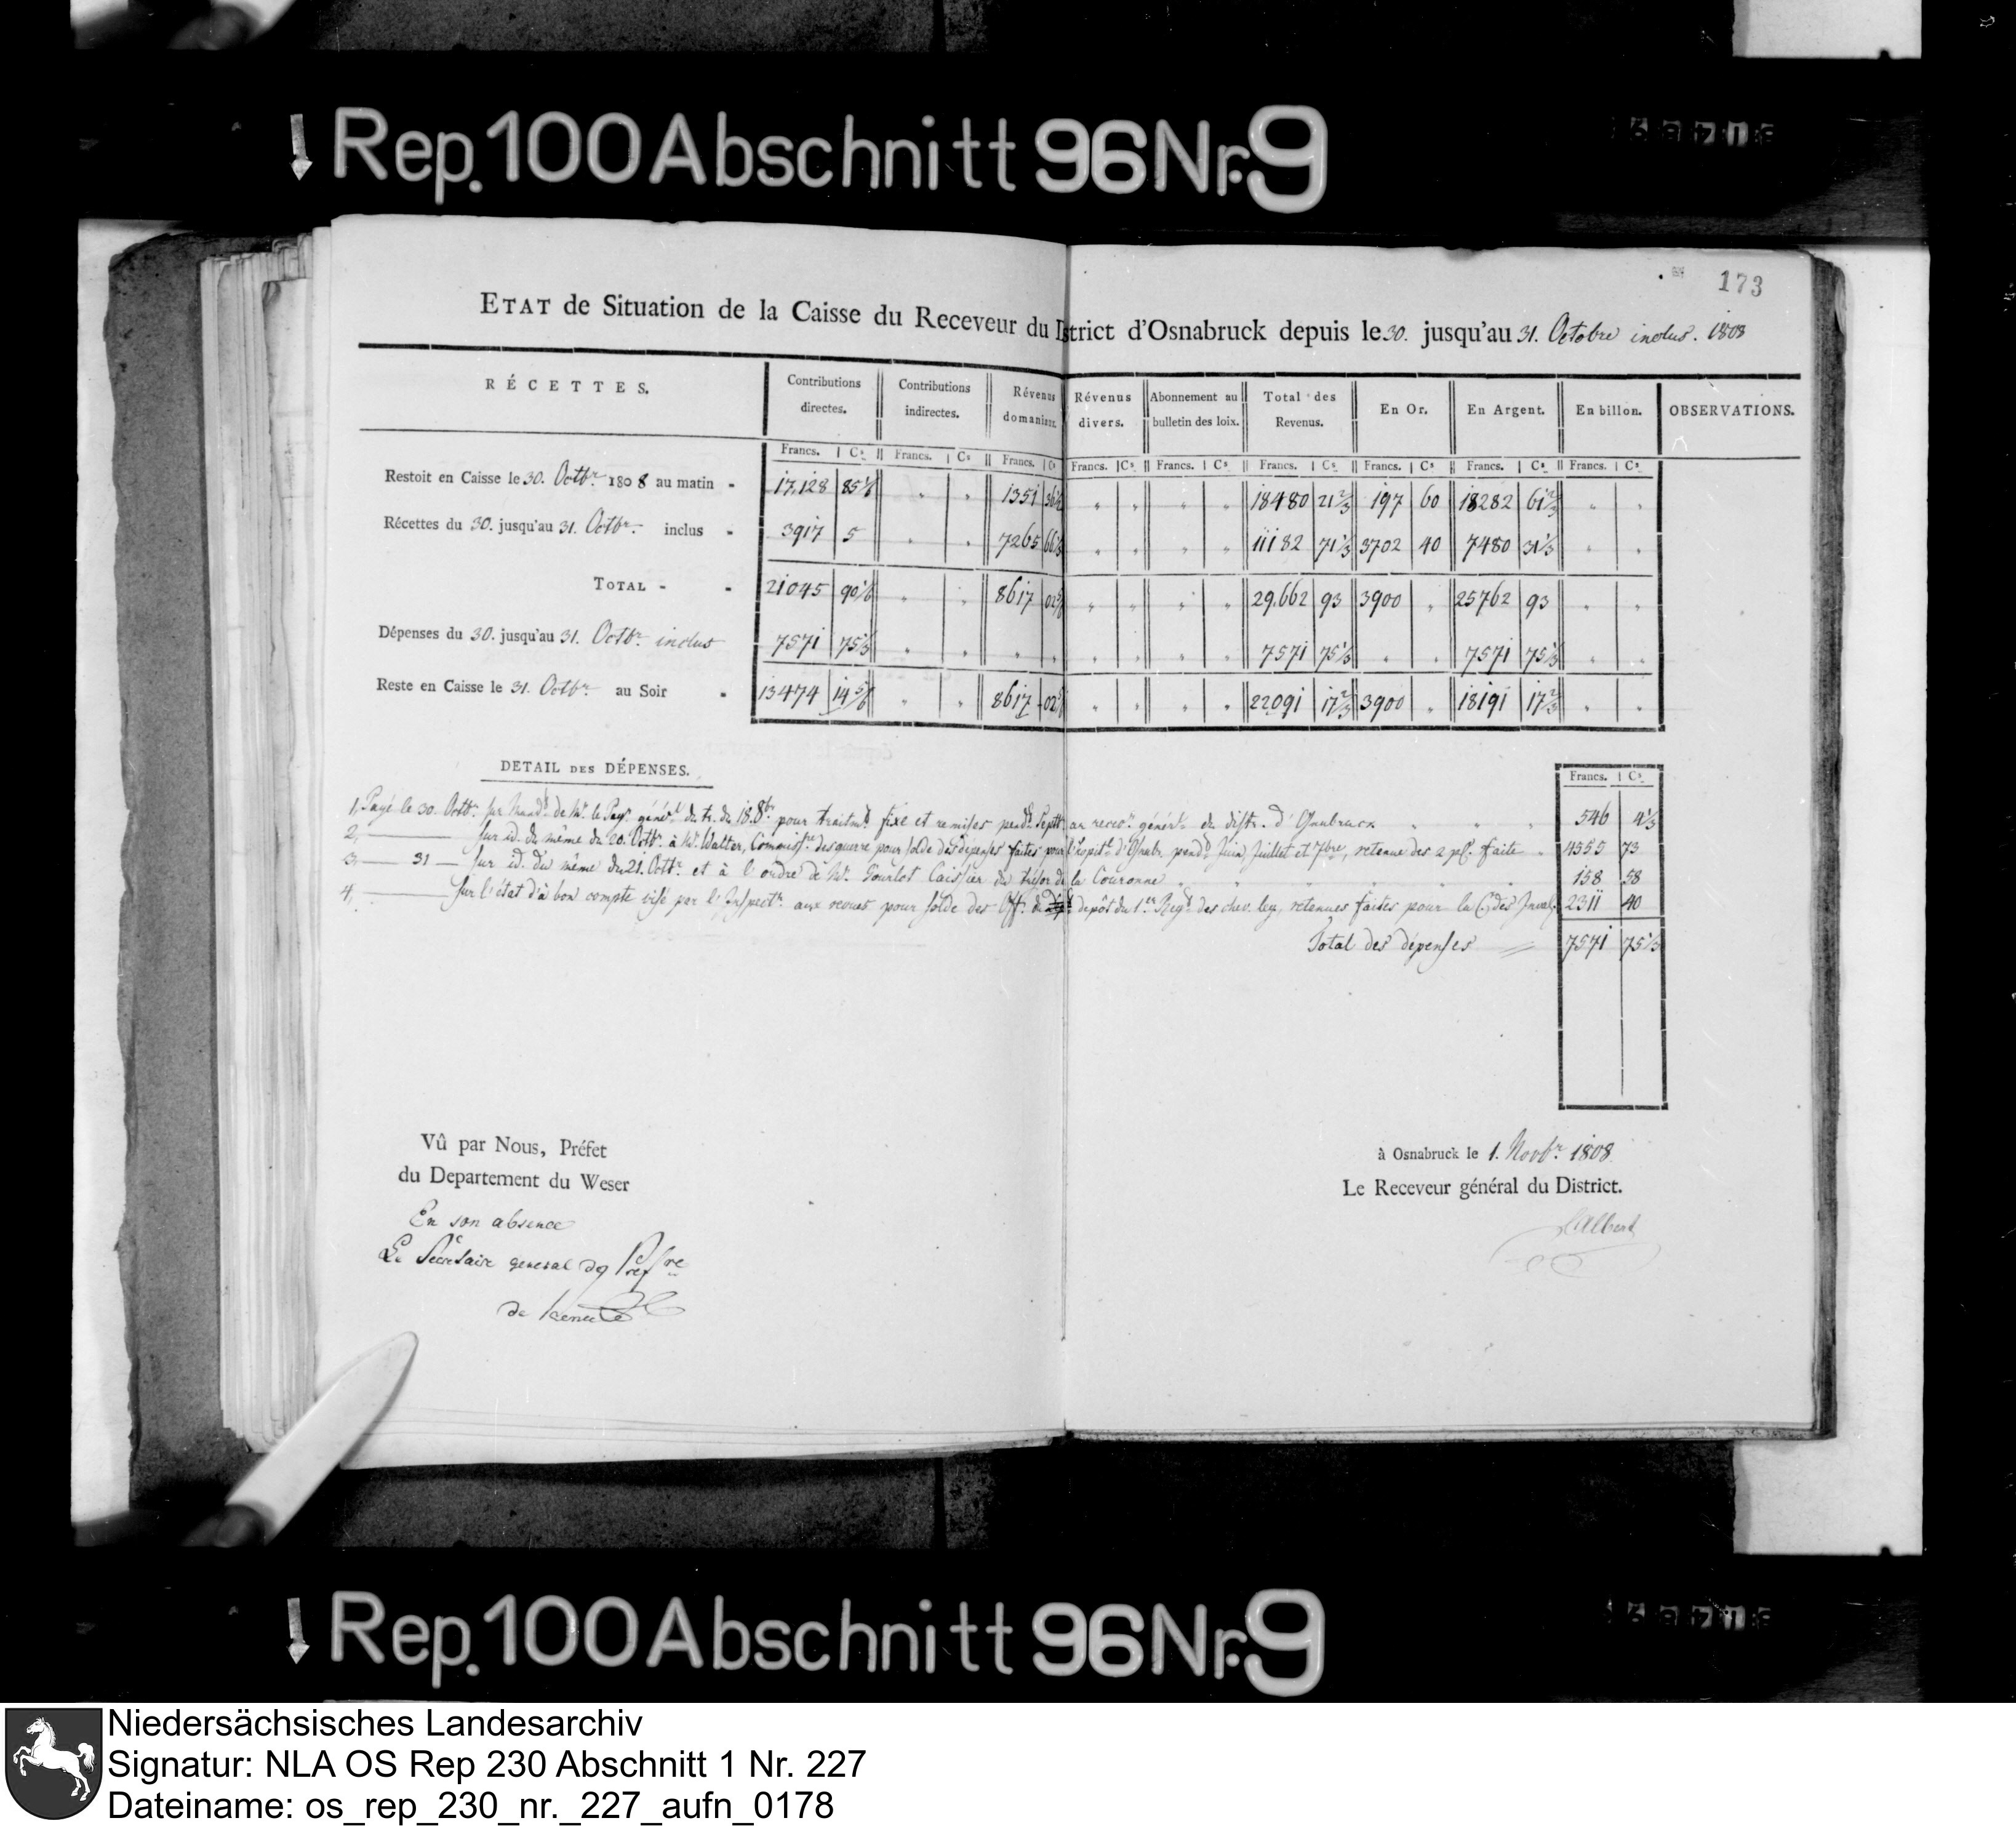 Rep. 100 Abschnitt 96 Nr. 9
173
ETAT de Situation de la Caisse du Receveur du District d'Osnabruck depuis le 30. jusqu'au 31. Octobre inclus. 1808
RÉCETTES. Contributions directes. Contributions indirectes. Révenus domaniaux. Révenus divers. Abonnement au bulletin des loix. Total des Revenus. En Or. En Argent. En billon. OBSERVATIONS.
Francs. Cs Francs. Cs Francs. Cs Francs. Cs Francs. Cs Francs. Cs Francs. Cs Francs. Cs Francs. Cs
Restoit en Caisse le 30. Octbr. 1808 au matin - 17,128 85 1/6 1351 36 1/2 18480 21 2/3 197 60 18282 61 2/3
Récettes du 30. jusqu'au 31. Octbr. inclus - 3917 5 7265 66 1/3 11182 71 1/3 3702 40 7480 31 1/3
TOTAL - - 21045 90 1/6 8617 02 5/6 29,662 93 3900 25762 93
Dépenses du 30. jusqu'au 31. Octbr. inclus 7571 75 1/3 7571 75 1/3 7571 75 1/3
Reste en Caisse le 31. Octbr. au Soir - 13474 14 5/6 8617 02 5/6 22091 17 2/3 3900 18191 17 2/3
DETAIL DES DÉPENSES.
Francs. Cs
1, Payé le 30. Octbr. sur Mandt. de Mr. le Payr. génér.l du tr. du 18. 8br. pour traitmt. fixe et remises pendt. Septbr. au recevr. génér.l du distr. d'Osnabruck 546 4 1/3
2, sur id. du même du 20. Octbr. à Mr. Walter, Commissre. des guerre pour solde des dépenses faites pour l'hopit.l d'Osnabr. pendt. Juin, Juillet et 7bre, retenue des 2 pC. faite 4555 73
3, 31 sur id. du même du 21. Octbr. et à l'ordre de Mr. Gourlot Caissier du trésor de la Couronne 158 58
4, sur l'état d'à bon compte visé par l'Inspectr. aux revues pour solde des Off. du depôt du 1.er Regt. des chev. leg, retenues faites pour la C. des Inval. 2311 40
Total des dépenses 7571 75 1/3
Vû par Nous, Préfet
du Departement du Weser
En son absence
Le Sécretaire general de Prefre
de
à Osnabruck le 1. Novbr. 1808
Le Receveur général du District.
Rep. 100 Abschnitt 96 Nr. 9
Niedersächsisches Landesarchiv
Signatur: NLA OS Rep 230 Abschnitt 1 Nr. 227
Dateiname: os_rep_230_nr._227_aufn_0178